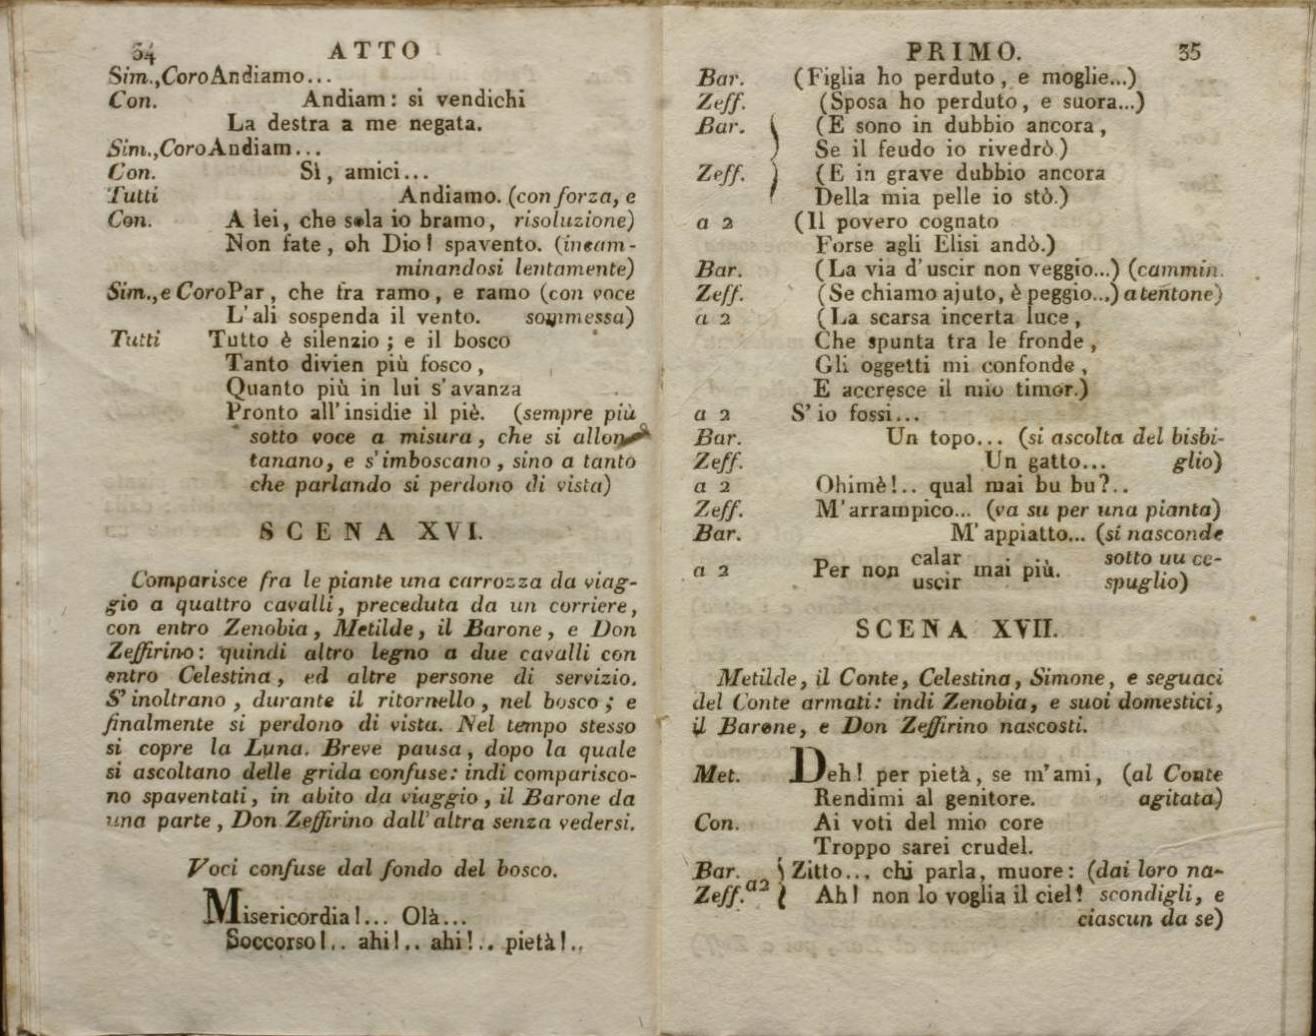 34 ATTO
Sim.,Coro Andiamo...
Con. Andiam: si vendichi
La destra a me negata.
Sim.,Coro Andiam...
Con. Sì, amici...
Tutti Andiamo. (con forza, e
Con. A lei, che sola io bramo, risoluzione)
Non fate, oh Dio! spavento. (incam-
minandosi lentamente)
Sim.,e Coro Par, che fra ramo, e ramo (con voce
L'ali sospenda il vento. sommessa)
Tutti Tutto è silenzio; e il bosco
Tanto divien più fosco,
Quanto più in lui s'avanza
Pronto all'insidie il piè. (sempre più
sotto voce a misura, che si allon-
tanano, e s'imboscano, sino a tanto
che parlando si perdono di vista)
SCENA XVI.
Comparisce fra le piante una carrozza da viag-
gio a quattro cavalli, preceduta da un corriere,
con entro Zenobia, Metilde, il Barone, e Don
Zeffirino: quindi altro legno a due cavalli con
entro Celestina, ed altre persone di servizio.
S'inoltrano, durante il ritornello, nel bosco; e
finalmente si perdono di vista. Nel tempo stesso
si copre la Luna. Breve pausa, dopo la quale
si ascoltano delle grida confuse: indi comparisco-
no spaventati, in abito da viaggio, il Barone da
una parte, Don Zeffirino dall'altra senza vedersi.
Voci confuse dal fondo del bosco.
Misericordia!... Olà...
Soccorso!.. ahi!.. ahi!.. pietà!..
PRIMO. 35
Bar. (Figlia ho perduto, e moglie...)
Zeff. (Sposa ho perduto, e suora...)
Bar. (E sono in dubbio ancora,
Se il feudo io rivedrò.)
Zeff. (E in grave dubbio ancora
Della mia pelle io stò.)
a 2 (Il povero cognato
Forse agli Elisi andò.)
Bar. (La via d'uscir non veggio...) (cammin.
Zeff. (Se chiamo ajuto, è peggio...) a tentone)
a 2 (La scarsa incerta luce,
Che spunta tra le fronde,
Gli oggetti mi confonde,
E accresce il mio timor.)
a 2 S'io fossi...
Bar. Un topo... (si ascolta del bisbi-
Zeff. Un gatto... glio)
a 2 Ohimè!.. qual mai bu bu?..
Zeff. M'arrampico... (va su per una pianta)
Bar. M'appiatto... (si nasconde
a 2 Per non calar mai più. sotto uu ce-
uscir spuglio)
SCENA XVII.
Metilde, il Conte, Celestina, Simone, e seguaci
del Conte armati: indi Zenobia, e suoi domestici,
il Barone, e Don Zeffirino nascosti.
Met. Deh! per pietà, se m'ami, (al Conte
Rendimi al genitore. agitata)
Con. Ai voti del mio core
Troppo sarei crudel.
Bar. Zitto... chi parla, muore: (dai loro na-
Zeff. a2 Ah! non lo voglia il ciel! scondigli, e
ciascun da se)